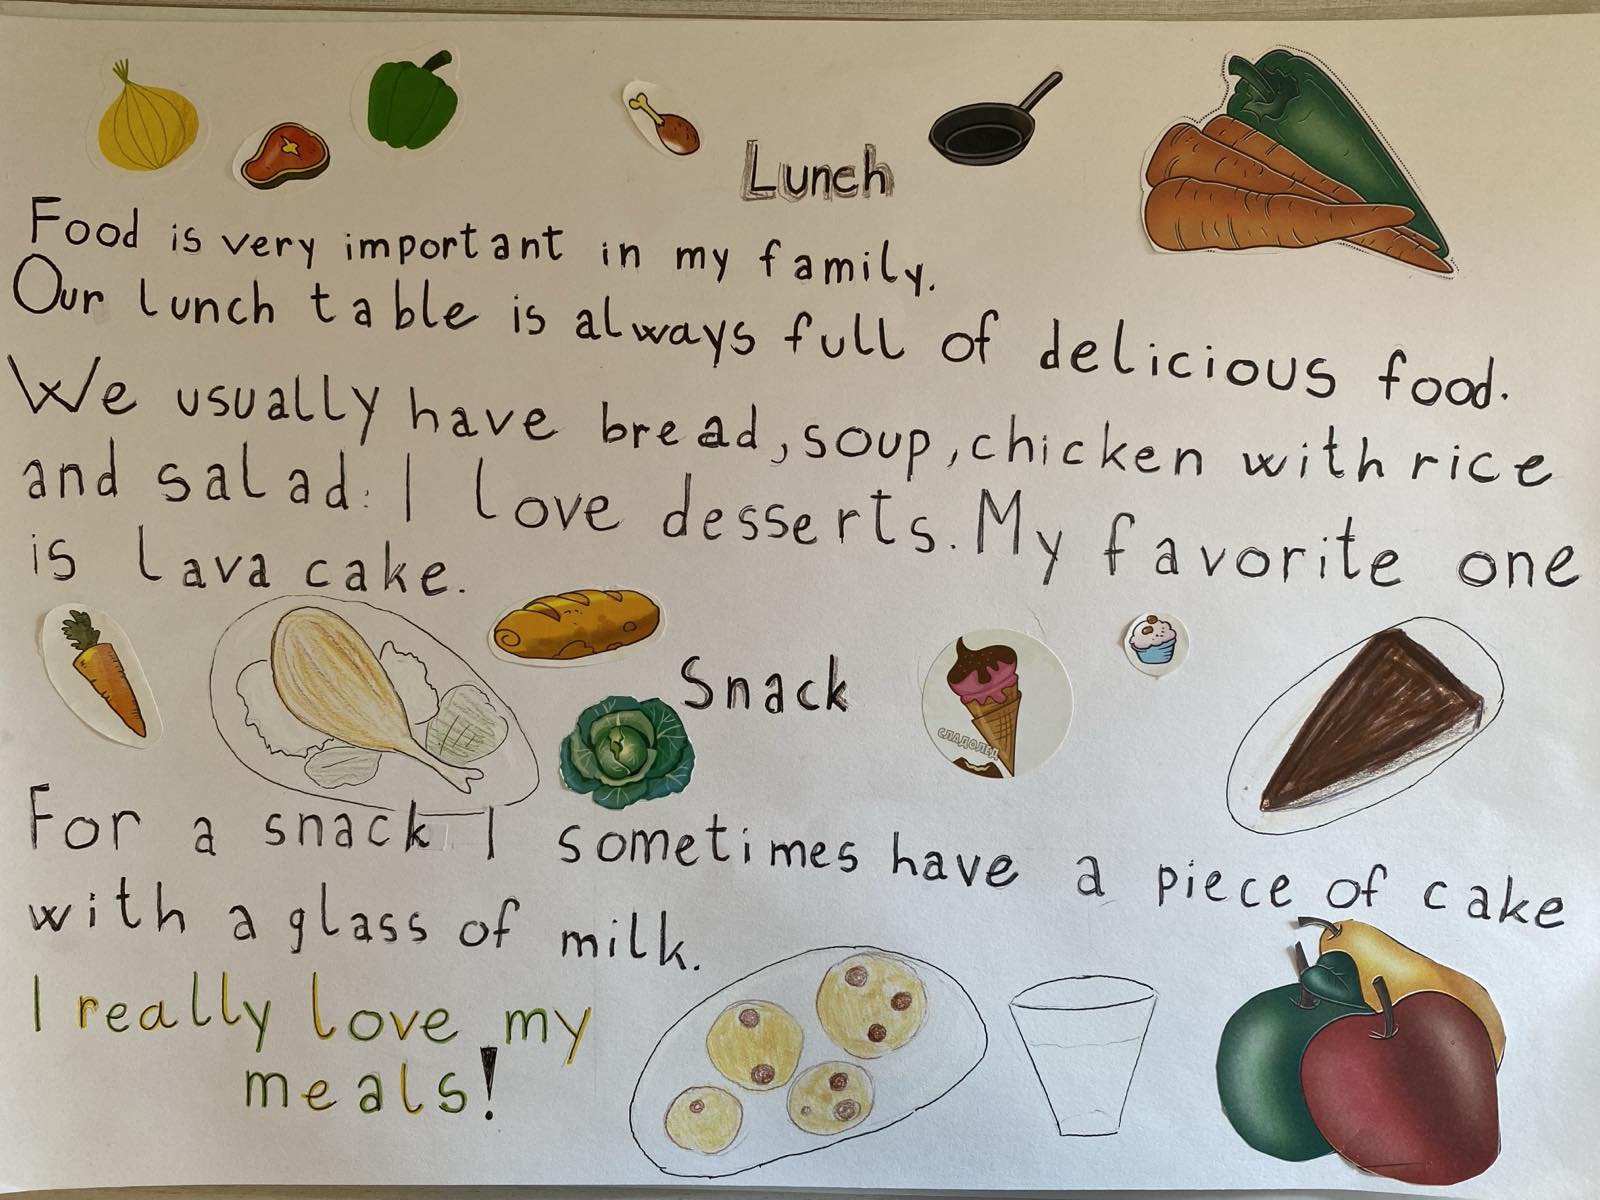 Lunch
Food is very important in my family.
Our lunch table is always full of delicious food.
We usually have bread, soup, chicken with rice
and salad. I love desserts. My favorite one
is lava cake.
Snack
СЛАДОЛЕД
For a snack I sometimes have a piece of cake
with a glass of milk.
I really love my
meals!